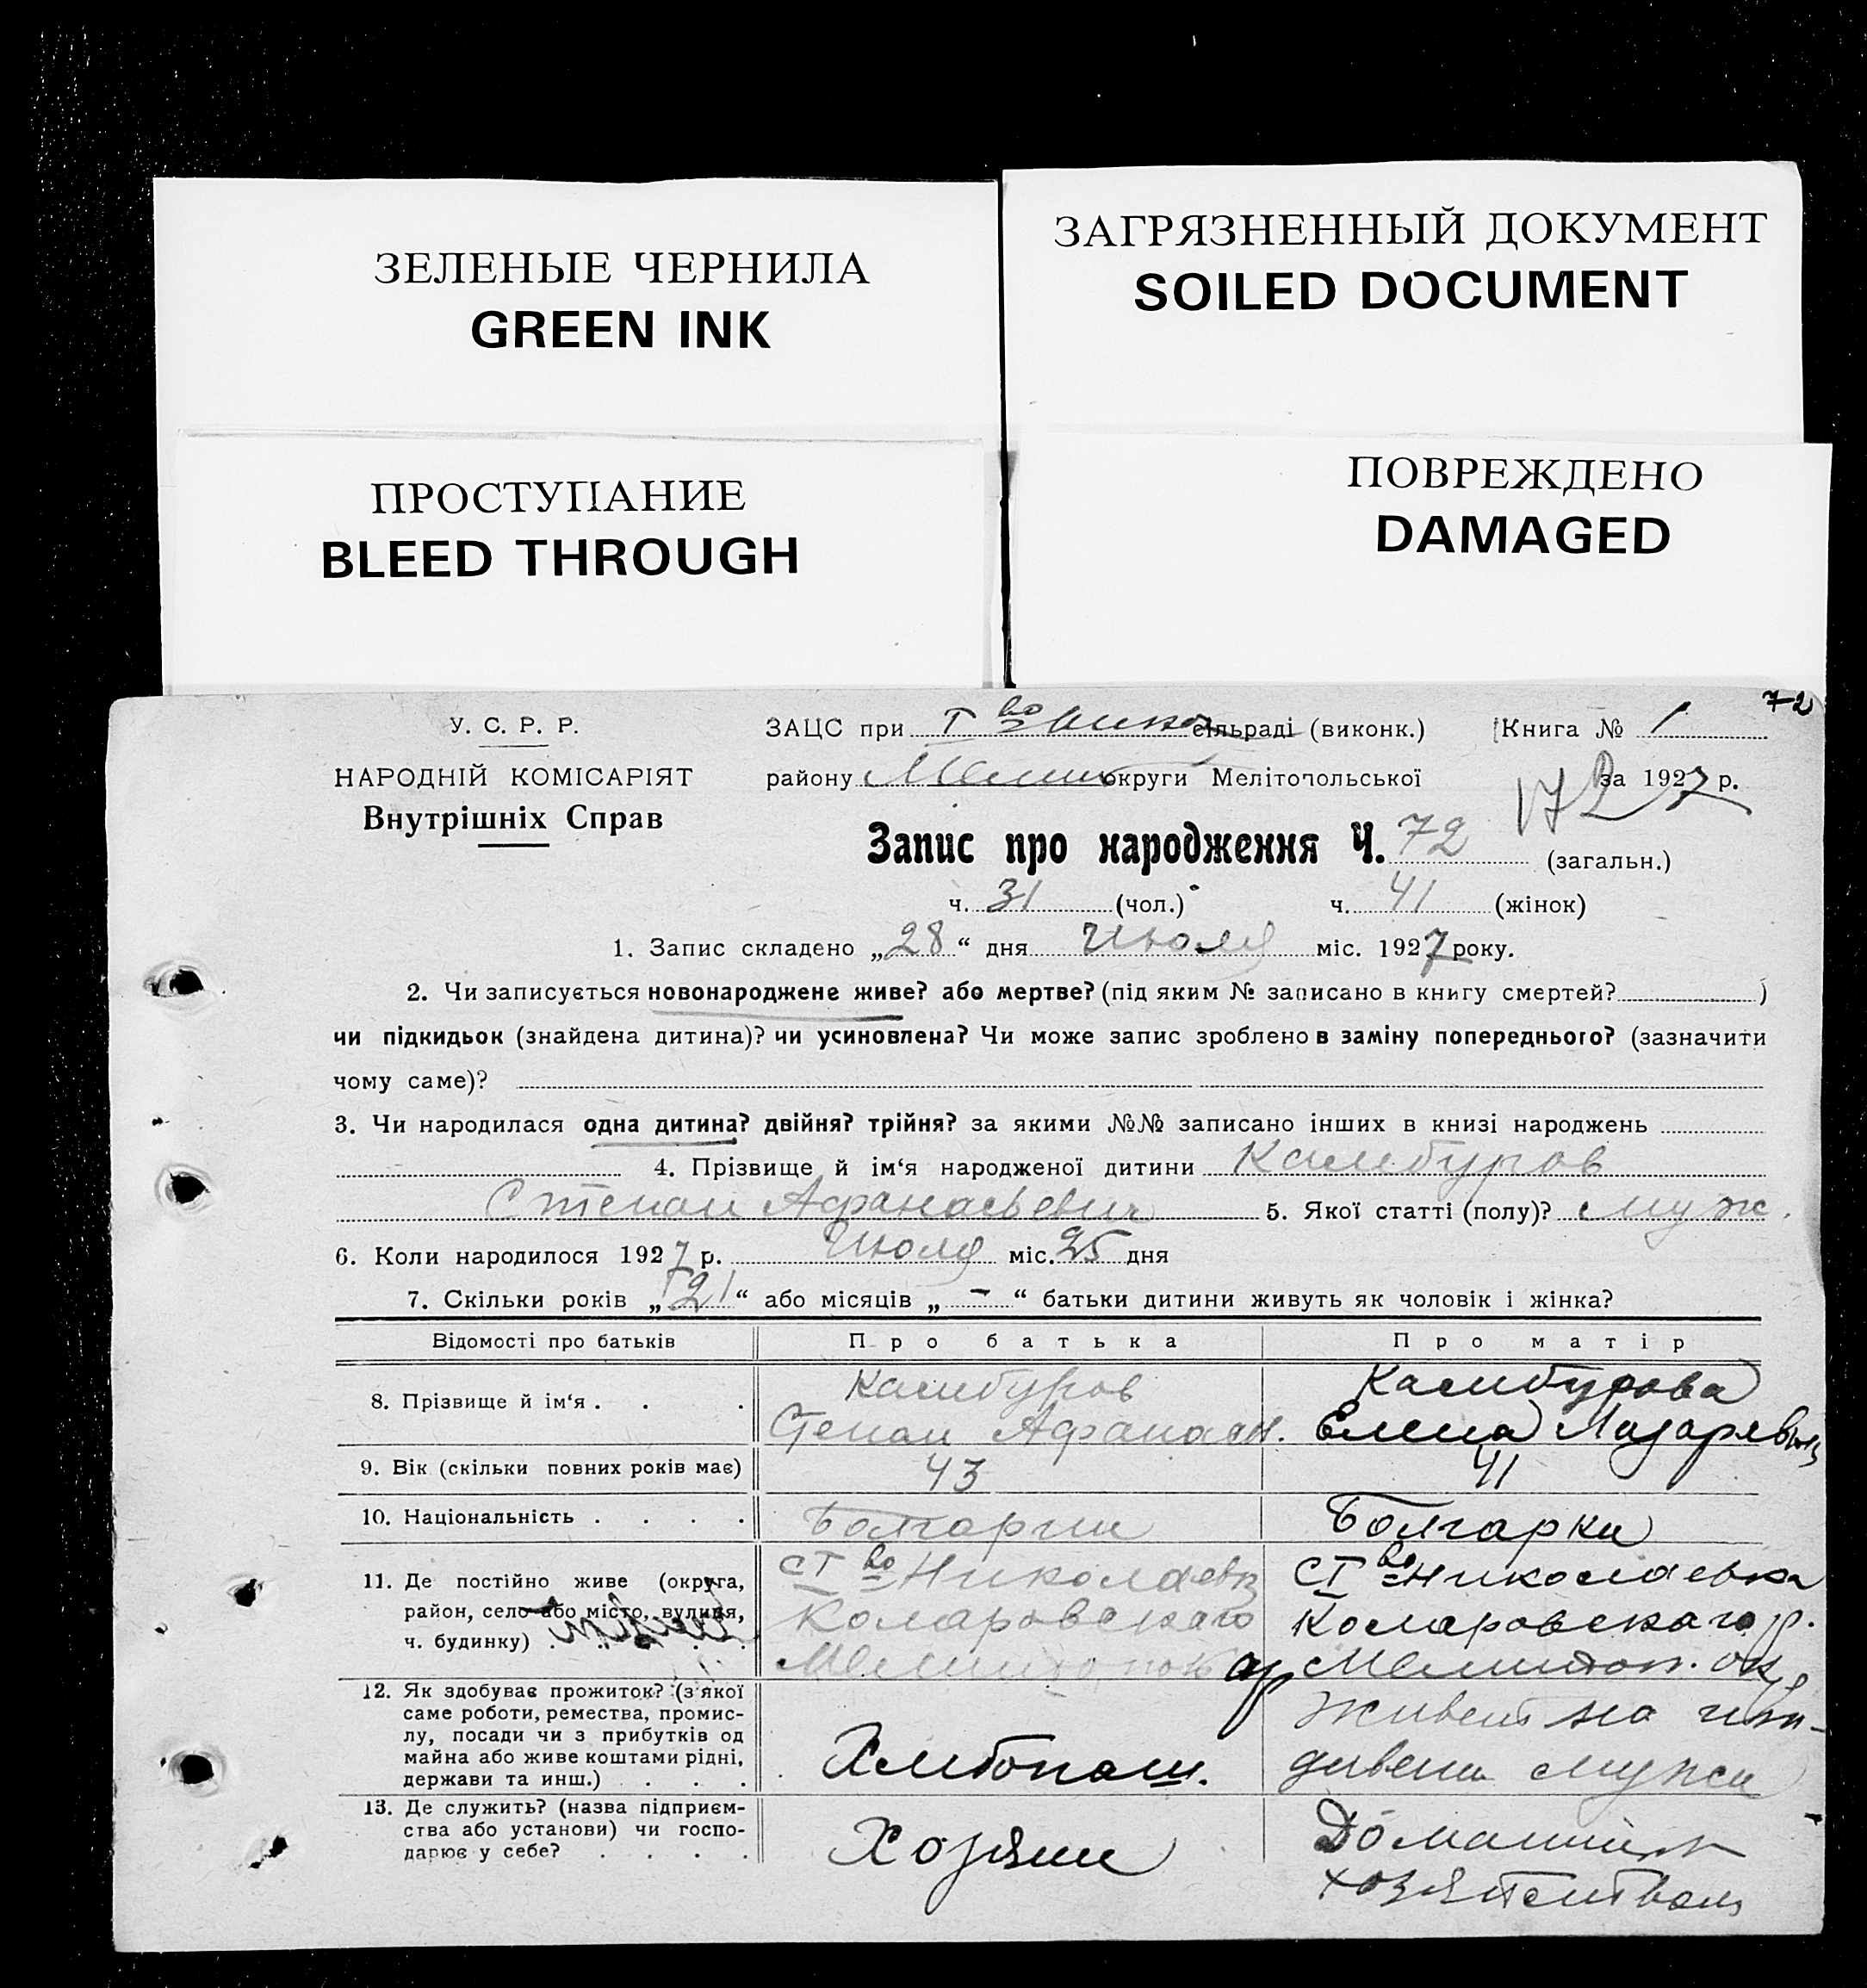 ЗЕЛЕНЫЕ ЧЕРНИЛА
GREEN INK
ЗАГРЯЗНЕННЫЙ ДОКУМЕНТ
SOILED DOCUMENT
ПРОСТУПАНИЕ
BLEED THROUGH
ПОВРЕЖДЕНО
DAMAGED
72
У. С. Р. Р.
НАРОДНІЙ КОМІСАРІЯТ
Внутрішніх Справ
ЗАЦС при сільраді (виконк.) Книга № 1
району округи Мелітопольської за 1927 р.
172
Запис про народження Ч. 72 (загальн.)
ч. 31 (чол.) ч. 41 (жінок)
1. Запис складено „28“ дня Июля міс. 1927 року.
2. Чи записується новонароджене живе? або мертве? (під яким № записано в книгу смертей? )
чи підкидьок (знайдена дитина)? чи усиновлена? Чи може запис зроблено в заміну попереднього? (зазначити
чому саме)?
3. Чи народилася одна дитина? двійня? трійня? за якими №№ записано інших в книзі народжень
4. Прізвище й ім‘я народженої дитини Камбуров
Степан Афанасьевич 5. Якої статті (полу)? муж.
6. Коли народилося 1927 р. Июля міс. 25 дня
7. Скільки років „21“ або місяців „ - “ батьки дитини живуть як чоловік і жінка?
Відомості про батьків Про батька Про матір
8. Прізвище й ім‘я . . . Камбуров Камбурова
Степан Афанасьев. Елена Лазаревна
9. Вік (скільки повних років має) 43 41
10. Національність . . . . Болгарин Болгарка
11. Де постійно живе (округа, ст Iво Николаевка ст Iво Николаевка
район, село або місто, вулиця, Комаровского Комаровского р.
ч. будинку) . Мелитопол ок Мелитоп. ок.
12. Як здобуває прожиток? (з якої
саме роботи, ремества, промис-
лу, посади чи з прибутків од
майна або живе коштами рідні,
держави та инш.) . . . Хлебопаш. Живет на ижди-
дивении мужа
13. Де служить? (назва підприєм-
ства або установи) чи госпо-
дарює у себе? . . . . Хозяин Домашним
хозяйством